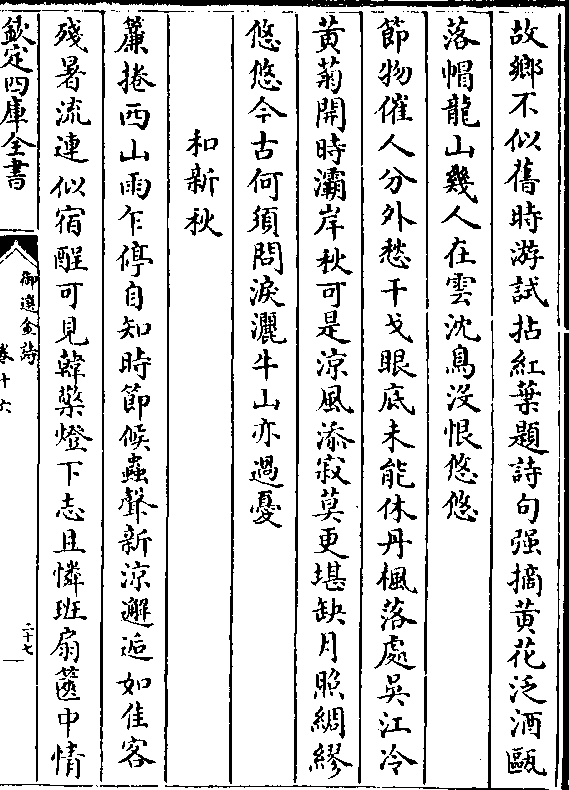 故鄉不似舊時游試拈紅葉題詩句强摘黄花泛酒甌
落帽龍山幾人在雲沈鳥没恨悠悠
節物催人分外愁干戈眼底未能休丹楓落處吳江冷
黄菊開時灞岸秋可是涼風添寂莫更堪缺月照綢繆
悠悠今古何須問淚灑牛山亦過憂
和新秋
簾捲西山雨乍停自知時節候蟲聲新涼邂逅如佳客
殘暑流連似宿酲可見韓檠燈下志且憐班扇篋中情
欽定四庫全書
御選金詩
卷十六
二十七